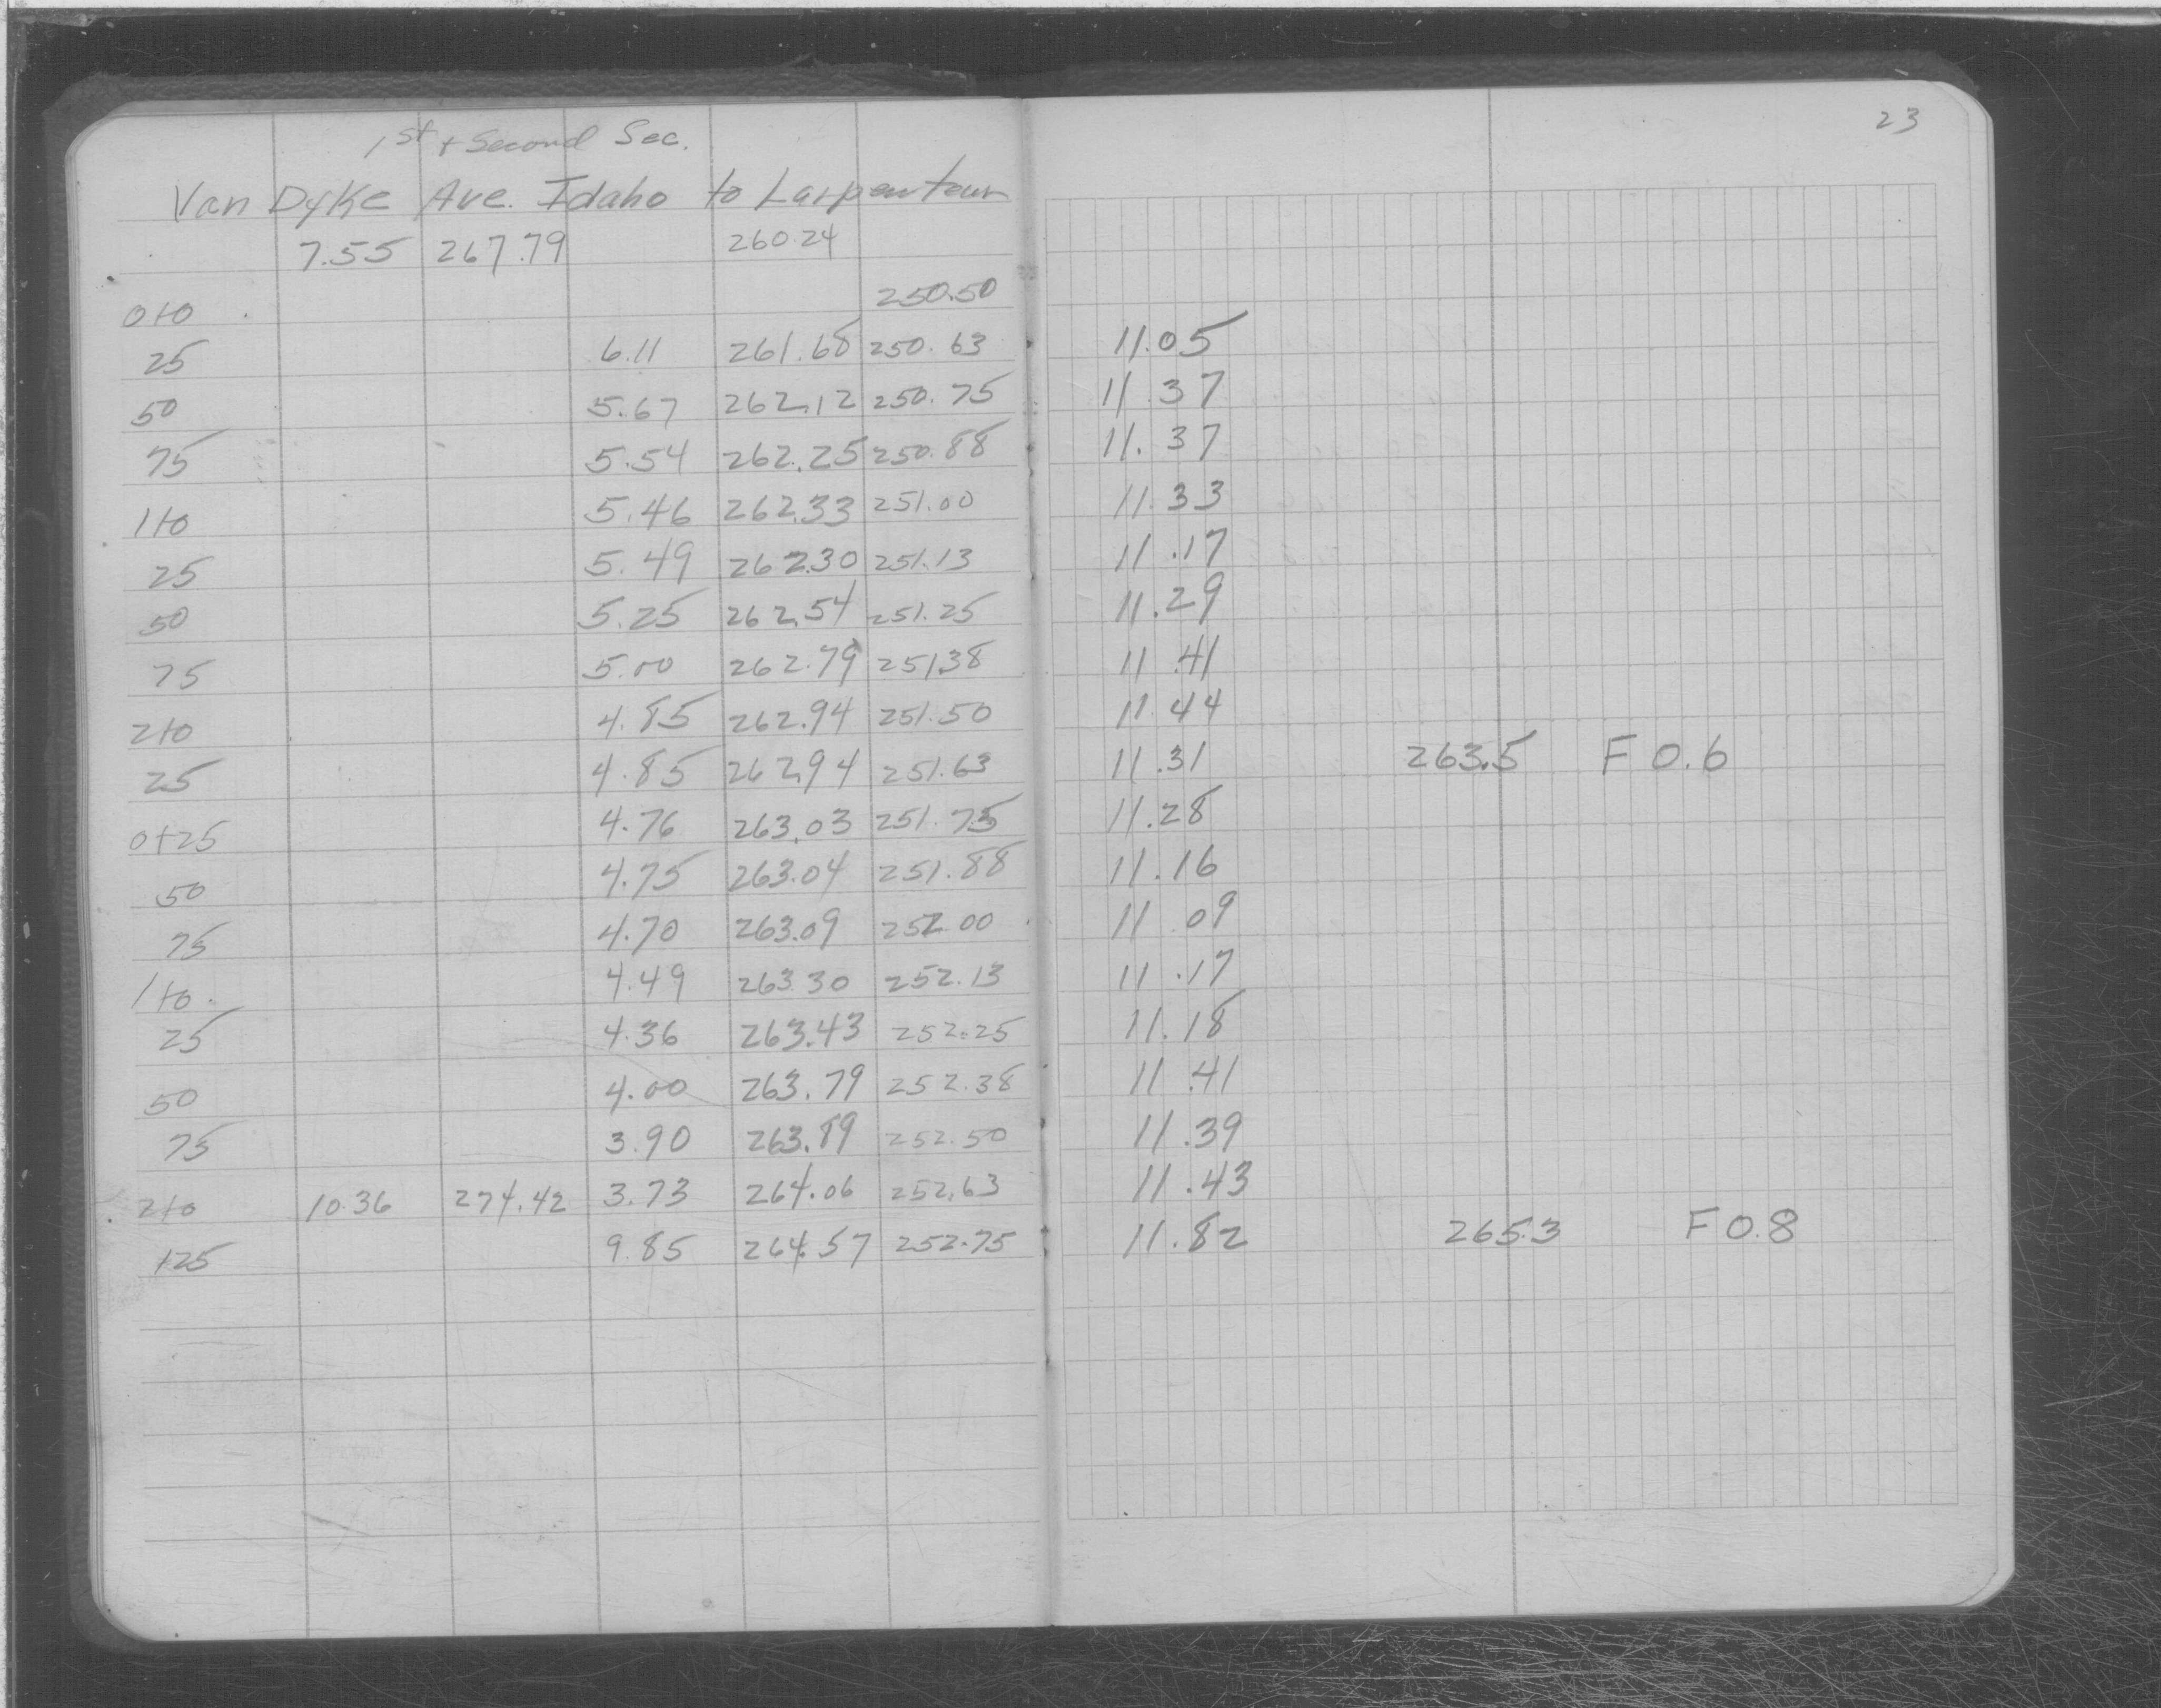 23
1st + Second Sec.
Van Dyke Ave. Idaho to Larpenteur
7.55 267.79 260.24
0+0 250.50
25 6.11 261.68 250.63 11.05
50 5.67 262.12 250.75 11.37
75 5.54 262.25 250.88 11.37
1+0 5.46 262.33 251.00 11.33
25 5.49 262.30 251.13 11.17
50 5.25 262.54 251.25 11.29
75 5.00 262.79 251.38 11.41
2+0 4.85 262.94 251.50 11.44
25 4.85 262.94 251.63 11.31 263.5 F 0.6
0+25 4.76 263.03 251.75 11.28
50 4.75 263.04 251.88 11.16
75 4.70 263.09 252.00 11.09
1+0. 4.49 263.30 252.13 11.17
25 4.36 263.43 252.25 11.18
50 4.00 263.79 252.38 11.41
75 3.90 263.89 252.50 11.39
2+0 10.36 274.42 3.73 264.06 252.63 11.43
+25 9.85 264.57 252.75 11.82 265.3 F 0.8